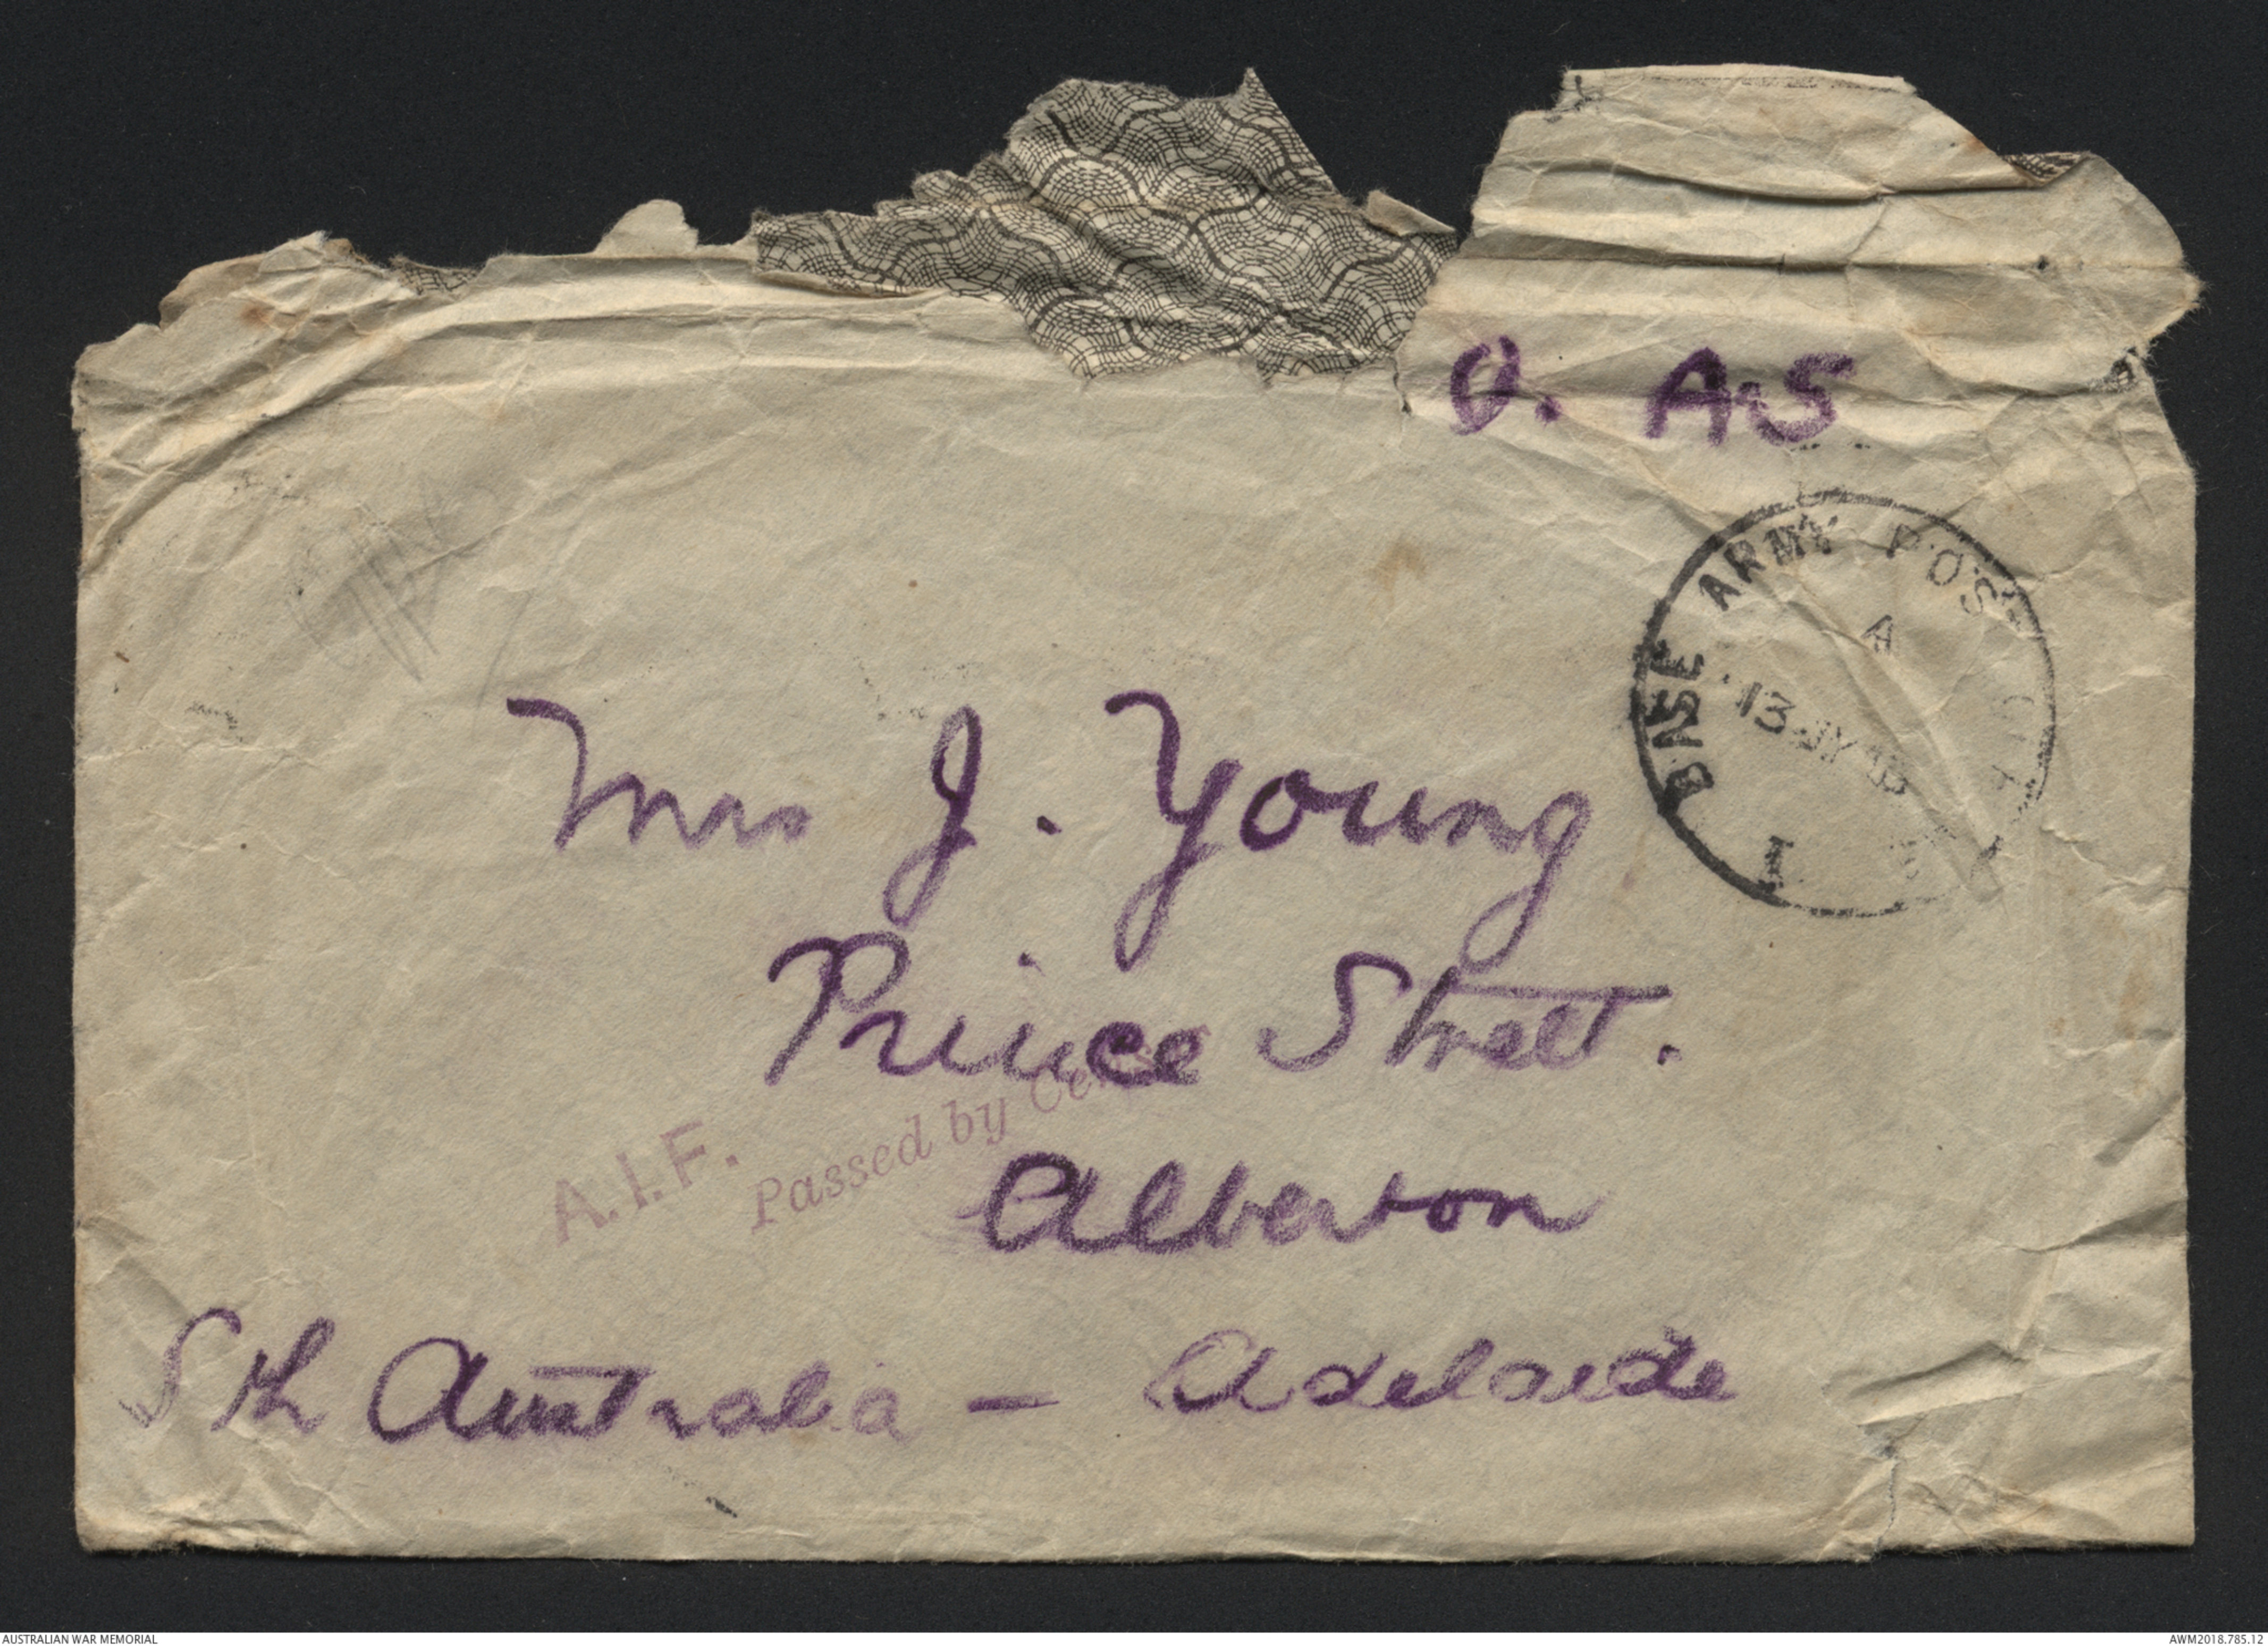 O. AS
BASE ARMY POST OFF
A
13 JY 16
I
Mrs J. Young
Prince Street.
A.I.F.
Passed by Censor
Alberton
Sth Australia - Adelaide
AUSTRALIAN WAR MEMORIAL
AWM2018.785.12